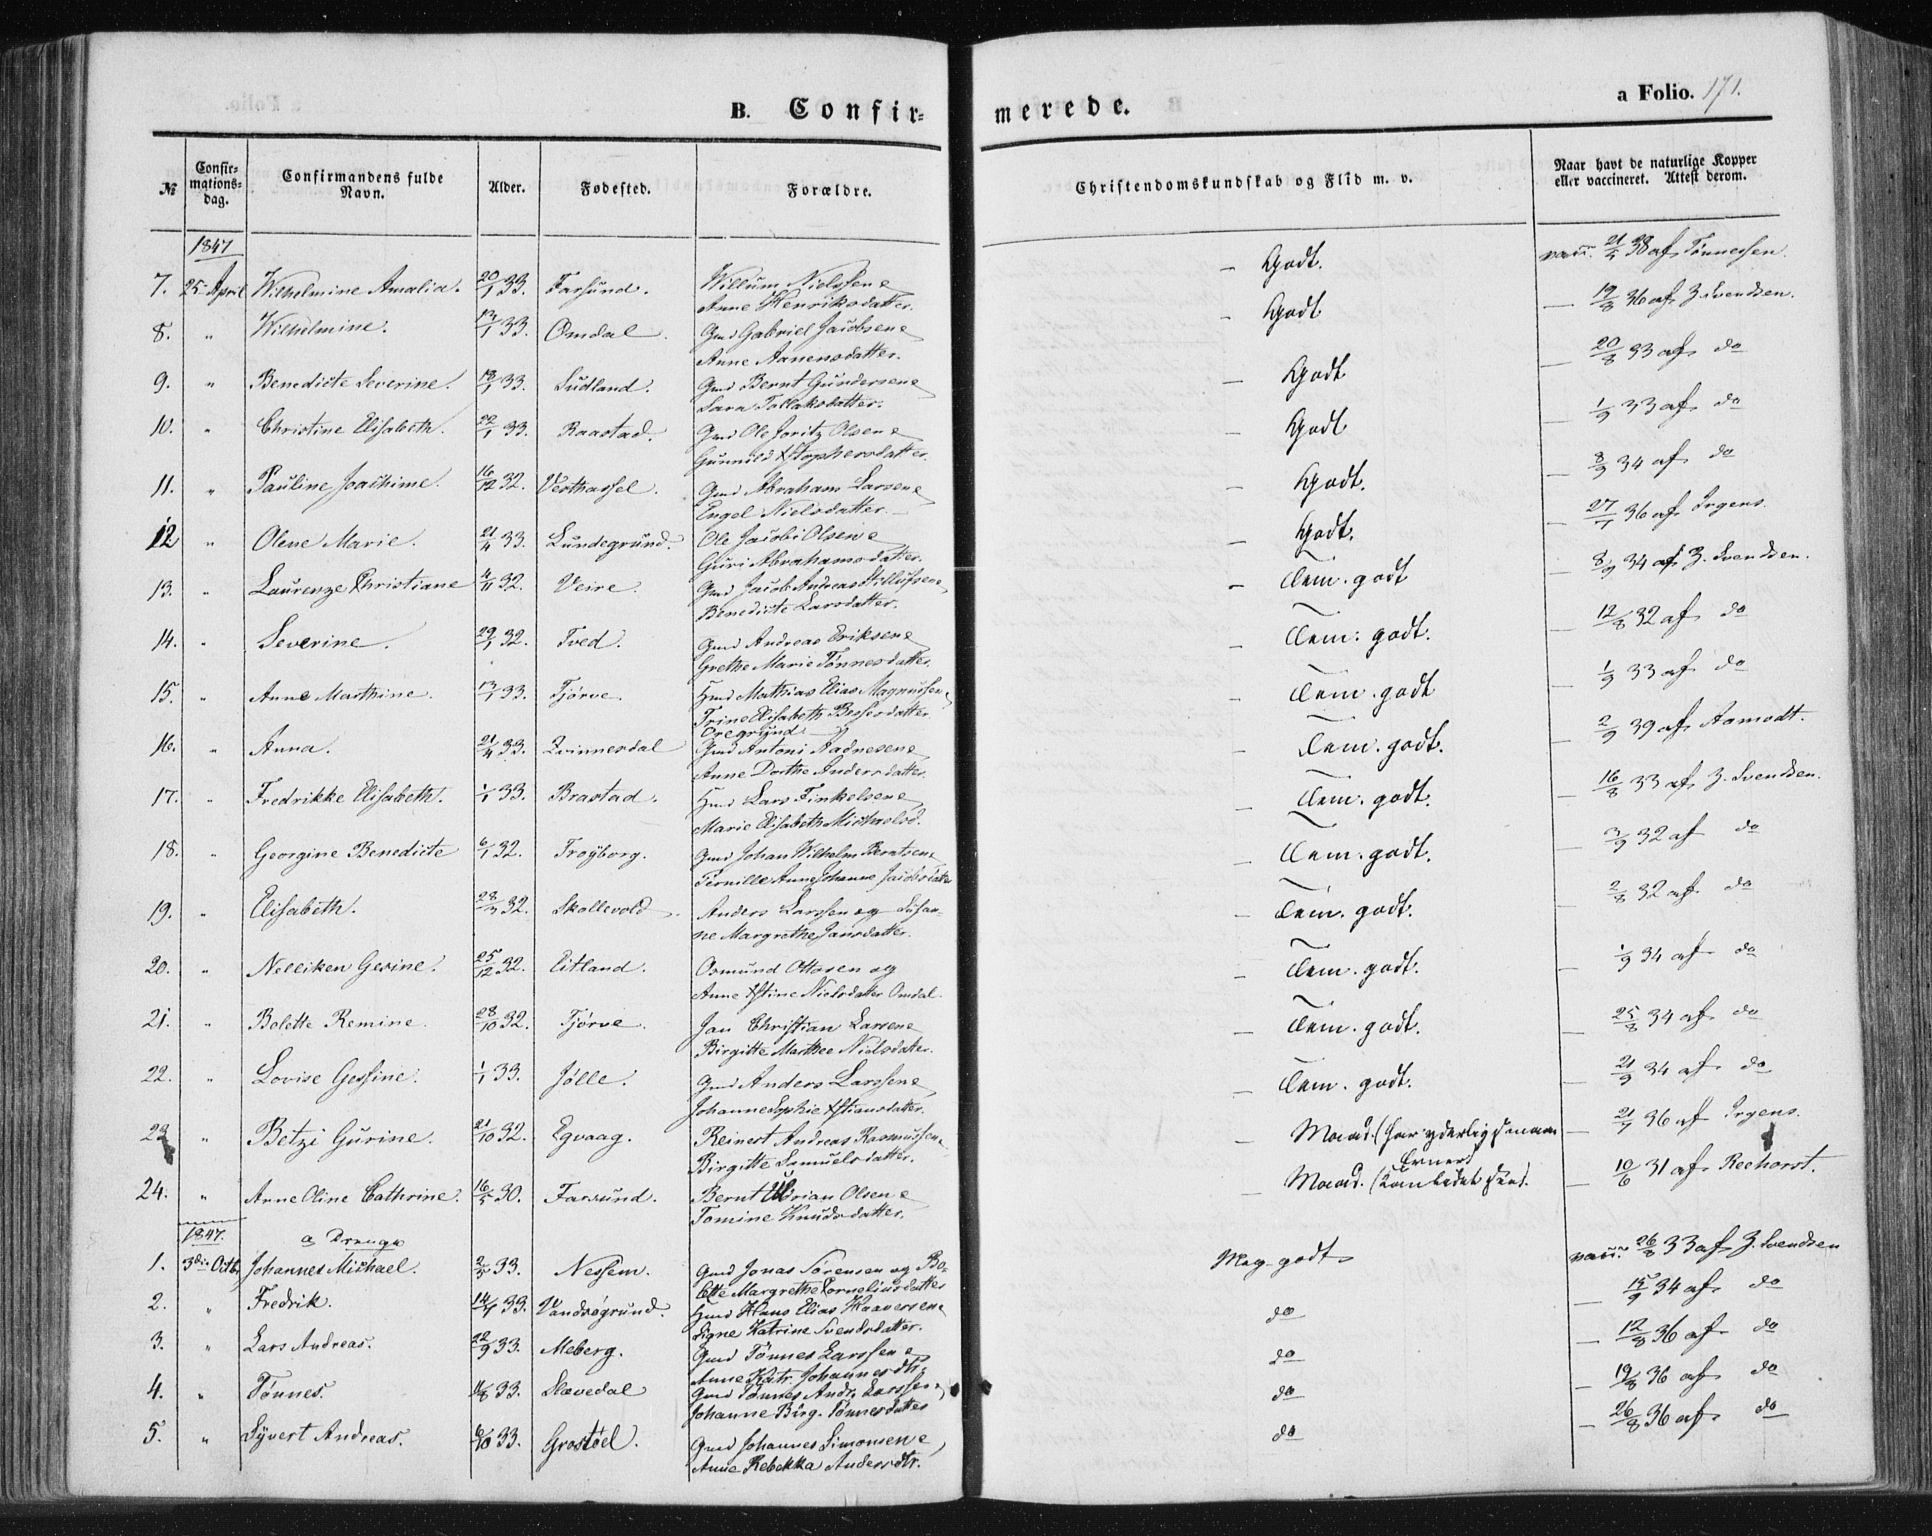 B. Confir-
merede.
a Folio. 171.
№
Confir-
mations-
dag.
Confirmandens fulde
Navn.
Alder.
Fødested.
Forældre.
Christendomskundskab og Flid m. v.
Naar havt de naturlige Kopper
eller vaccineret. Attest derom.
1847
7. 25 April Wilhelmine Amalia. 20/1 33. Farsund. Willum Nielssen &
Anne Henriksdatter.
- Godt. vacc. 21/5 38 af Tønnessen.
8. " Wilhelmine. 13/1 33. Omdal. Gmd Gabriel Jacobsen &
Anne Aanensdatter.
- Godt — 19/8 36 af Z. Svendsen.
9. " Benedicte Severine. 13/1 33. Sudland. Gmd Bernt Gundersen &
Sara Tollaksdatter.
- Godt — 20/8 33 af do
10. " Christine Elisabeth. 22/1 33. Raastad. Gmd Ole Joritz Olsen &
Gunnild Xstophersdatter.
- Godt — 1/9 33 af do
11. " Pauline Joachime. 16/12 32. Vesthassel. Gmd Abraham Larsen &
Engel Nielsdatter.
- Godt. — 8/9 34 af do
12 " Olene Marie. 21/4 33. Lundegrund. Ole Jacobi Olsen &
Guri Abrahamsdatter.
- Godt. — 27/7 36 af Irgens.
13. " Laurenze Christiane 4/11 32. Veire. Gmd Jacob Andreas
Benedicte Larsdatter.
- Tem. godt — 8/9 34 af Z. Svendsen.
14. " Severine. 29/1 32. Tved. Gmd Andreas Eriksen &
Grethe Marie Tønnesdatter.
Tem: godt. — 12/8 32 af do
15. " Anne Marthine. 13/1 33. Tjørve. Hmd Mathias Elias Magnussen &
Trine Elisabeth Bessesdatter
- Tem. godt — 1/9 33 af do
Oregrund
16. " Anna. 21/4 33. Qvinnesdal Gmd Antoni Aadnesen &
Anne Dorthe Andersdatter.
- Tem. godt. — 2/9 39 af Aamodt.
17. " Fredrikke Elisabeth. 1/1 33. Brastad. Hmd Lars Finkelsen &
Marie Elisabeth Michaelsd.
- Tem. godt. — 16/8 33 af Z. Svendsen.
18. " Georgine Benedicte 6/1 32. Frøyborg. Gmd Johan Wilhelm Berntsen &
Pernille Anne Johanne Jacobsdatter
- Tem. godt. — 3/9 32 af do
19. " Elisabeth. 28/3 32. Skollevold. Anders Larssen og Susan-
ne Margrethe Jansdatter.
- Tem. godt. 2/8 32 af do
20. " Nelliken Gerine. 25/12 32. Eitland. Osmund Ottosen og
Anne Xstine Nielsdatter Omdal.
- Tem. godt. — 1/9 34 af do
21. " Bolette Remine. 28/10 32. Tjørve. Jan Christian Larsen &
Birgitte Marthee Nielsdatter.
- Tem. godt. — 25/8 34 af do
22. " Lovise Gessine. 1/1 33. Jølle. Gmd Anders Larssen &
Johanne Sophie Xstiansdatter.
- Tem. godt. — 21/9 34 af do
23 " Betzi Gurine. 21/10 32. Egvaag. Reinert Andreas Rasmussen &
Birgitte Samuelsdatter.
- Maad. — 21/7 36 af Irgens.
24. " Anne Oline Cathrine. 16/5 30. Farsund. Bernt Olsen &
Tomine Knudsdatter.
- Maad. — 10/6 31 af Reehorst.
1847. a Drenge
1. 3die Octbr Johannes Michael. 2/5 33. Nessem. Gmd Jonas Sørensen og Bo-
lette Margrethe Corneliusdatter
Meg godt vacc. 26/8 33 af Z. Svendsen
2. " Fredrik. 33. Vandsøgrund. Hmd Hans Elias Haaversen &
Signe Katrine Svendsdatter.
do — 15/9 34 af do
3. " Lars Andreas. 22/9 33. Meberg. Gmd Tønnes Larssen &
Anne Katr. Johannesdtr.
do — 12/8 36 af do
4. " Tønnes. 33. Slævedal Gmd Tønnes Andr. Larssen &
Johanne Birg. Tønnesdatter
do — 19/8 36 af do
5. " Syvert Andreas. 6/10 33. Grostøel. Gmd Johannes Simonsen &
Anne Rebekka Andersdtr.
do — 26/8 36 af do